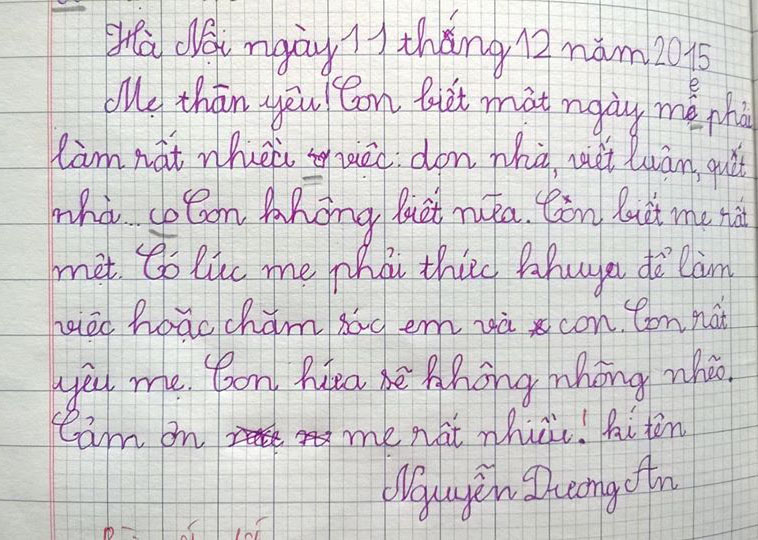 Hà Nội ngày 11 tháng 12 năm 2015
Mẹ thân yêu! Con biết một ngày mẹ phải
làm rất nhiều việc: dọn nhà, viết luận, quét
nhà... Con không biết nữa. Con biết mẹ rất
mệt. Có lúc mẹ phải thức khuya để làm
việc hoặc chăm sóc em và con. Con rất
yêu mẹ. Con hứa sẽ không nhõng nhẽo.
Cảm ơn mẹ rất nhiều! kí tên
Nguyễn Dương An